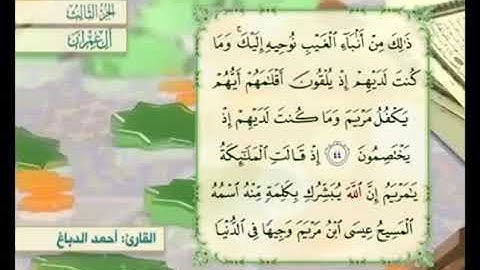 الجزء الثالث
آل عمران
ذَٰلِكَ مِنْ أَنۢبَآءِ ٱلْغَيْبِ نُوحِيهِ إِلَيْكَ ۚ وَمَا
كُنتَ لَدَيْهِمْ إِذْ يُلْقُونَ أَقْلَٰمَهُمْ أَيُّهُمْ
يَكْفُلُ مَرْيَمَ وَمَا كُنتَ لَدَيْهِمْ إِذْ
يَخْتَصِمُونَ ٤٤ إِذْ قَالَتِ ٱلْمَلَٰٓئِكَةُ
يَٰمَرْيَمُ إِنَّ ٱللَّهَ يُبَشِّرُكِ بِكَلِمَةٍ مِّنْهُ ٱسْمُهُ
ٱلْمَسِيحُ عِيسَى ٱبْنُ مَرْيَمَ وَجِيهًا فِى ٱلدُّنْيَا
القارئ: أحمد الدباغ